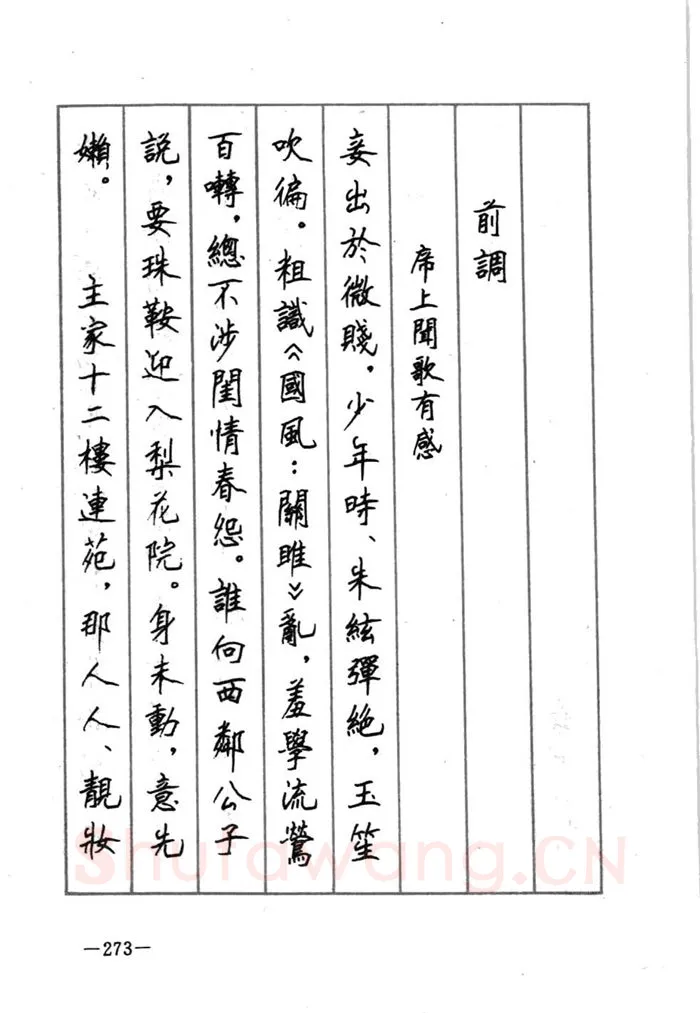 前調
席上聞歌有感
妾出於微賤。少年時、朱絃彈絶，玉笙
吹徧。粗識《國風：關雎》亂，羞學流鶯
百囀，總不涉閨情春怨。誰向西鄰公子
説，要珠鞍迎入梨花院。身未動，意先
嬾。　主家十二樓連苑，那人人、靚妝
—273—
Shufawang.CN